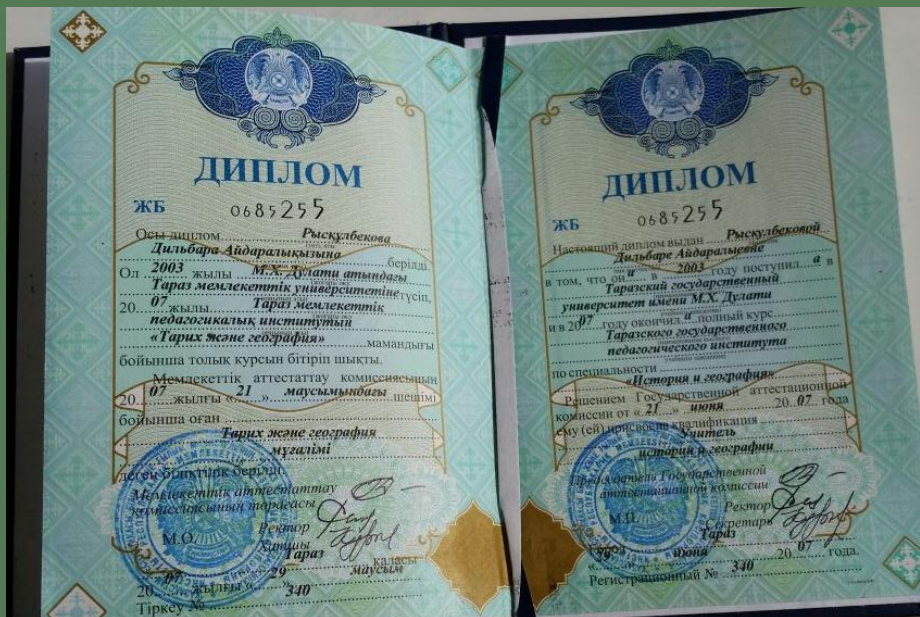 ДИПЛОМ
ЖБ 0685255
Осы диплом Рыскулбекова
Дильбара Айдаралықызына берілді.
Ол 2003 жылы М.Х. Дулати атындағы
Тараз мемлекеттік университетіне түсіп,
2007 жылы Тараз мемлекеттік
педагогикалық институтын
«Тарих және география» мамандығы
бойынша толық курсын бітіріп шықты.
Мемлекеттік аттестаттау комиссиясының
2007 жылғы «21» маусымындағы шешімі
бойынша оған
Тарих және география
мұғалімі
деген біліктілік берілді.
Мемлекеттік аттестаттау
комиссиясының төрағасы
Ректор
М.О. Хатшы
Тараз қаласы
2007 жылғы «29» маусым
Тіркеу № 340
ДИПЛОМ
ЖБ 0685255
Настоящий диплом выдан Рыскулбековой
Дильбаре Айдаралыевне
в том, что он а в 2003 году поступил а в
Таразский государственный
университет имени М.Х. Дулати
и в 2007 году окончил а полный курс
Таразского государственного
педагогического института
по специальности
«История и география»
Решением Государственной аттестационной
комиссии от «21» июня 2007 года
ему (ей) присвоена квалификация
Учитель
истории и географии
Председатель Государственной
аттестационной комиссии
Ректор
М.П. Секретарь
Тараз
июня 2007 года.
Регистрационный № 340